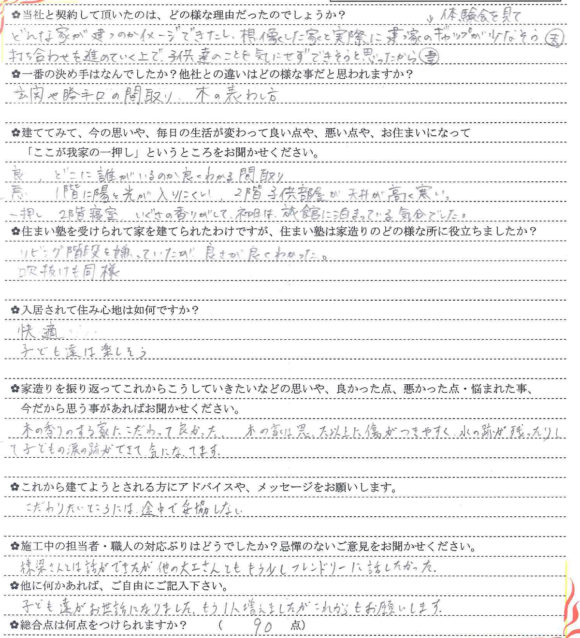 ✿当社と契約して頂いたのは、どの様な理由だったのでしょうか?
↓体験会を見て
どんな家が建つのかイメージできたし、想像した家と実際に建つ家のギャップが少なそう(夫)
打ち合わせを進めていく上で、子供達のことも気にせずできそうと思ったから(妻)
✿一番の決め手はなんでしたか?他社との違いはどの様な事だと思われますか?
玄関や勝手口の間取り、木の表わし方
✿建ててみて、今の思いや、毎日の生活が変わって良い点や、悪い点や、お住まいになって
「ここが我家の一押し」というところをお聞かせください。
良、どこに誰がいるのか良くわかる間取り
悪、1階に陽を光が入りにくい、2階子供部屋が天井が高く寒い。
一押し 2階寝室、いぐさの香りがして、初日は、旅館に泊まっている気分でした。
✿住まい塾を受けられて家を建てられたわけですが、住まい塾は家造りのどの様な所に役立ちましたか?
リビング階段を っていたが 良さが良くわかった。
吹抜けも同様
✿入居されて住み心地は如何ですか?
快適……
子ども達は楽しそう
✿家造りを振り返ってこれからこうしていきたいなどの思いや、良かった点、悪かった点・悩まれた事、
今だから思う事があればお聞かせください。
木の香りのする家にこだわって良かった、木の家は思った以上に傷がつきやすく、水の跡が残ったりし
て子どもの涙の跡ができて気になってます。
✿これから建てようとされる方にアドバイスや、メッセージをお願いします。
こだわりたいところには、途中で妥協しない
✿施工中の担当者・職人の対応ぶりはどうでしたか?忌憚のないご意見をお聞かせください。
さんとは話ができたが他の大工さんとももう少しフレンドリーに話したかった。
✿他に何かあれば、ご自由にご記入下さい。
子ども達がお世話になりました。もう1人増えましたがこれからもお願いします。
✿総合点は何点をつけられますか? ( 90 点)